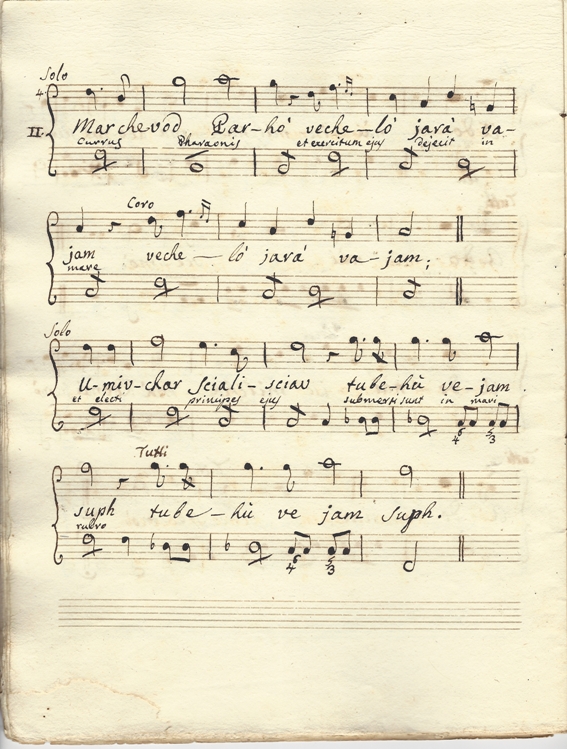 Solo
4.
II. Marchevod Par-hò veche-lò jarà va-
Currus Pharaonis et exercitum ejus dejecit in
Coro
jam veche-lò jarà va-jam;
mare
Solo
U-miv-char Sciali-sciav tube-hù ve-jam
et electi principes ejus submersi sunt in mari
6 4 5 3
Tutti
suph tube-hù ve jam suph.
rubro
6 4 5 3